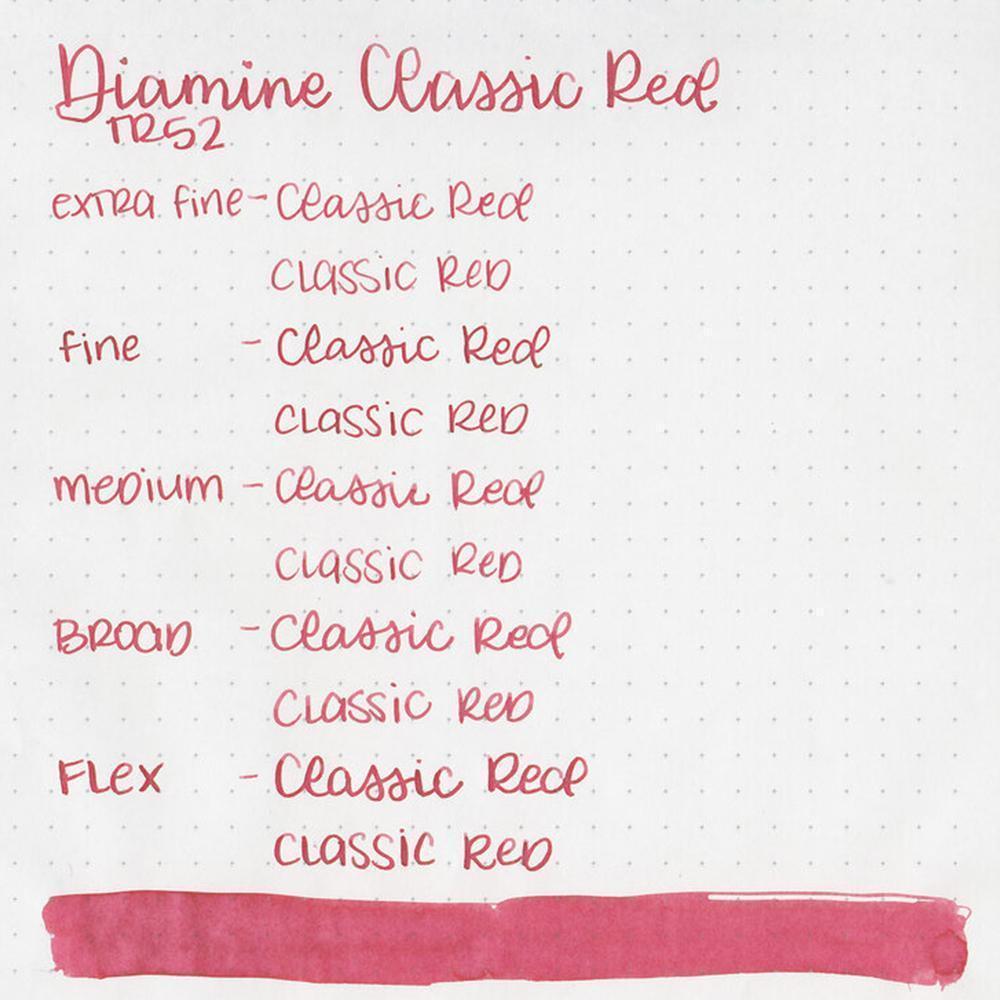 Diamine Classic Red
TR52
extra fine - Classic Red
CLASSIC RED
fine - Classic Red
CLASSIC RED
medium - Classic Red
CLASSIC RED
BROAD - Classic Red
CLASSIC RED
FLEX - Classic Red
CLASSIC RED